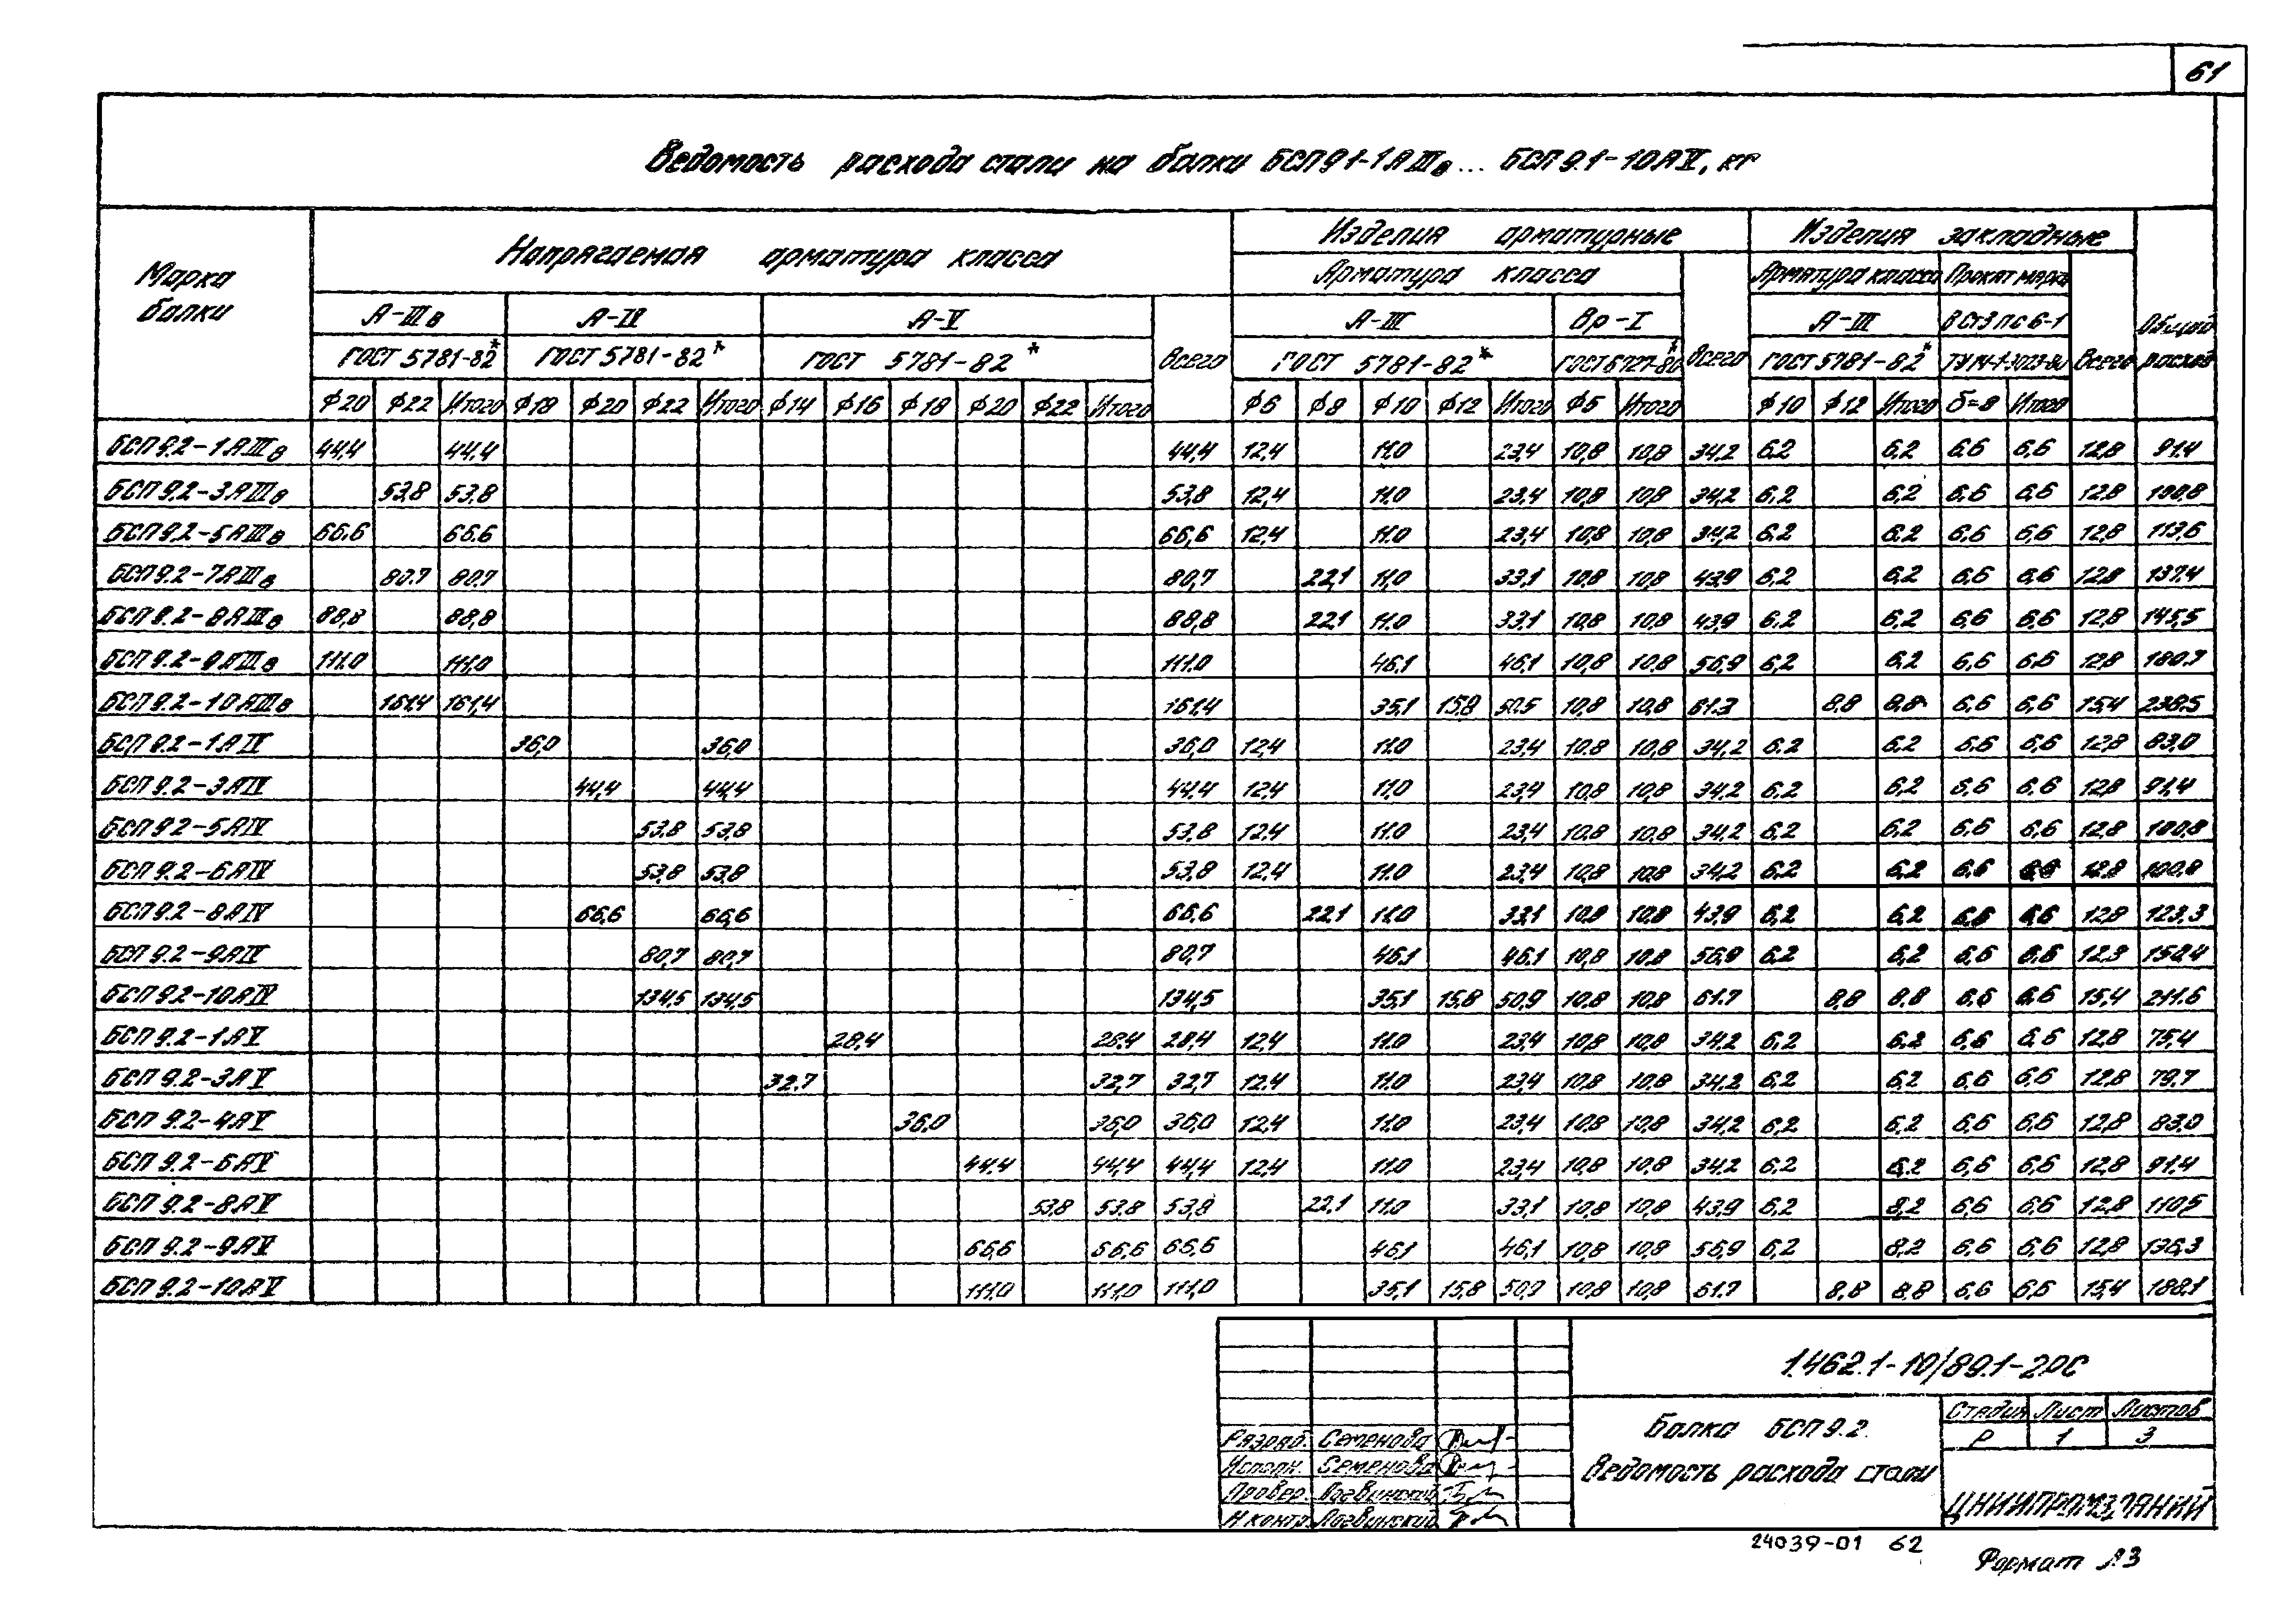 61
Ведомость расхода стали на балки БСП 9.1-1АIIIв... БСП 9.1-10АV, кг
Марка балки
Напрягаемая арматура класса
Изделия арматурные
Изделия закладные
Общий расход
Арматура класса
Арматура класса
Прокат марки
А-IIIв
А-IV
А-V
Всего
А-III
Вр-I
Всего
А-III
ВСт3пс6-1
Всего
ГОСТ 5781-82*
ГОСТ 5781-82*
ГОСТ 5781-82*
ГОСТ 5781-82*
ГОСТ 6727-80*
ГОСТ 5781-82*
ТУ14-1-3023-80
ϕ20 ϕ22 Итого ϕ18 ϕ20 ϕ22 Итого ϕ14 ϕ16 ϕ18 ϕ20 ϕ22 Итого ϕ6 ϕ8 ϕ10 ϕ12 Итого ϕ5 Итого ϕ10 ϕ12 Итого δ=8 Итого
БСП 9.2-1АIIIв 44,4 44,4 44,4 12,4 11,0 23,4 10,8 10,8 34,2 6,2 6,2 6,6 6,6 12,8 91,4
БСП 9.2-3АIIIв 53,8 53,8 53,8 12,4 11,0 23,4 10,8 10,8 34,2 6,2 6,2 6,6 6,6 12,8 100,8
БСП 9.2-5АIIIв 66,6 66,6 66,6 12,4 11,0 23,4 10,8 10,8 34,2 6,2 6,2 6,6 6,6 12,8 113,6
БСП 9.2-7АIIIв 80,7 80,7 80,7 22,1 11,0 33,1 10,8 10,8 43,9 6,2 6,2 6,6 6,6 12,8 137,4
БСП 9.2-8АIIIв 88,8 88,8 88,8 22,1 11,0 33,1 10,8 10,8 43,9 6,2 6,2 6,6 6,6 12,8 145,5
БСП 9.2-9АIIIв 111,0 111,0 111,0 46,1 46,1 10,8 10,8 56,9 6,2 6,2 6,6 6,6 12,8 180,7
БСП 9.2-10АIIIв 161,4 161,4 161,4 35,1 15,8 50,5 10,8 10,8 61,3 8,8 8,8 6,6 6,6 15,4 238,5
БСП 9.2-1АIV 36,0 36,0 36,0 12,4 11,0 23,4 10,8 10,8 34,2 6,2 6,2 6,6 6,6 12,8 83,0
БСП 9.2-3АIV 44,4 44,4 44,4 12,4 11,0 23,4 10,8 10,8 34,2 6,2 6,2 6,6 6,6 12,8 91,4
БСП 9.2-5АIV 53,8 53,8 53,8 12,4 11,0 23,4 10,8 10,8 34,2 6,2 6,2 6,6 6,6 12,8 100,8
БСП 9.2-6АIV 53,8 53,8 53,8 12,4 11,0 23,4 10,8 10,8 34,2 6,2 6,2 6,6 6,6 12,8 100,8
БСП 9.2-8АIV 66,6 66,6 66,6 22,1 11,0 33,1 10,8 10,8 43,9 6,2 6,2 6,6 6,6 12,8 123,3
БСП 9.2-9АIV 80,7 80,7 80,7 46,1 46,1 10,8 10,8 56,9 6,2 6,2 6,6 6,6 12,8 150,4
БСП 9.2-10АIV 134,5 134,5 134,5 35,1 15,8 50,9 10,8 10,8 61,7 8,8 8,8 6,6 6,6 15,4 211,6
БСП 9.2-1АV 28,4 28,4 28,4 12,4 11,0 23,4 10,8 10,8 34,2 6,2 6,2 6,6 6,6 12,8 75,4
БСП 9.2-3АV 32,7 32,7 32,7 12,4 11,0 23,4 10,8 10,8 34,2 6,2 6,2 6,6 6,6 12,8 79,7
БСП 9.2-4АV 36,0 36,0 36,0 12,4 11,0 23,4 10,8 10,8 34,2 6,2 6,2 6,6 6,6 12,8 83,0
БСП 9.2-6АV 44,4 44,4 44,4 12,4 11,0 23,4 10,8 10,8 34,2 6,2 6,2 6,6 6,6 12,8 91,4
БСП 9.2-8АV 53,8 53,8 53,8 22,1 11,0 33,1 10,8 10,8 43,9 6,2 8,2 6,6 6,6 12,8 110,5
БСП 9.2-9АV 66,6 66,6 66,6 46,1 46,1 10,8 10,8 56,9 6,2 8,2 6,6 6,6 12,8 136,3
БСП 9.2-10АV 111,0 111,0 111,0 35,1 15,8 50,9 10,8 10,8 61,7 8,8 8,8 6,6 6,6 15,4 188,1
1.462.1-10/89.1-2РС
Разраб. Семенова
Исполн. Семенова
Провер. Логвинский
Н.контр. Логвинский
Балка БСП 9.2.
Ведомость расхода стали
Стадия Лист Листов
Р 1 3
ЦНИИПРОМЗДАНИЙ
24039-01 62
Формат А3